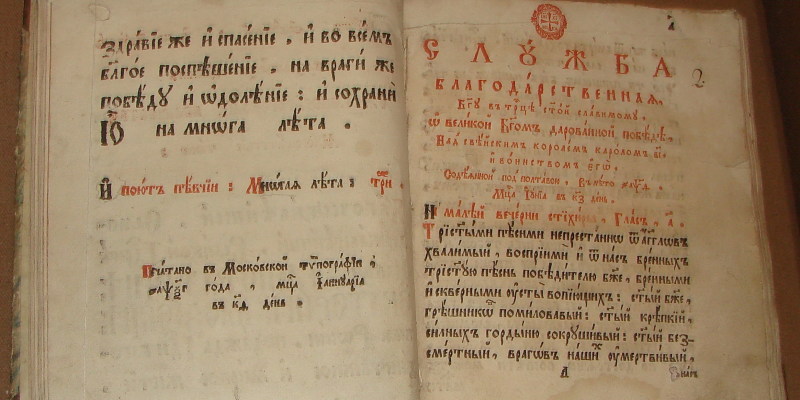 здра́вїе же и҆ спасе́нїе , и҆ во всѐмъ
бл҃го́е поспѣше́нїе , на враги́ же
побѣ́дꙋ и҆ ѡ҆долѣ́нїе : и҆ сохрани́
и҆̀ на мнѡ́га лѣ́та .
И҆ пою́тъ пѣвчїи : Мнѡ́гаѧ лѣ́та : три́ .
Печа́тано въ Моско́вской тѷпогра́фїи ,
го́да , мц҃а І҆аннꙋа́рїа
въ к҃д де́нь .
СЛꙋ́ЖБА
БЛАГОДА́РСТВЕННАѦ ,
Бг҃ꙋ въ трⷪ҇цѣ ст҃о́й сла́вимомꙋ ,
ѡ҆ вели́кой Бг҃омъ дарова́нной побѣ́дѣ ,
над̾ свѣ́йскимъ короле́мъ ка́роломъ в҃і
и҆ во́инствомъ є҆гѡ̀ ,
Содѣ́ѧнной под̾ полта́вою , въ лѣ́то ҂аѱ҃ѳ .
Мц҃а І҆ꙋ́нїа въ к҃з де́нь .
На ма́лѣй вече́рни стїхи́ры , Гла́съ , а҃ .
Трїст҃ы́ми пѣ́сньми непреста́ннѡ ѿ а҆́гг҃лѡвъ
хвали́мый , воспрїимѝ и҆ ѿ на́съ бре́нныхъ
трїст҃ꙋ́ю пѣ́снь побѣди́телю бж҃е , бре́нными
и҆ скве́рными ᲂу҆сты̀ вопїю́щихъ : ст҃ы́й бж҃е ,
грѣ́шникѡвъ поми́ловавый : ст҃ы́й крѣ́пкїй ,
си́льныхъ горды́ню сокрꙋши́вый : ст҃ы́й без-
сме́ртный , врагѡ́въ на́шихъ ᲂу҆мертви́вый ,